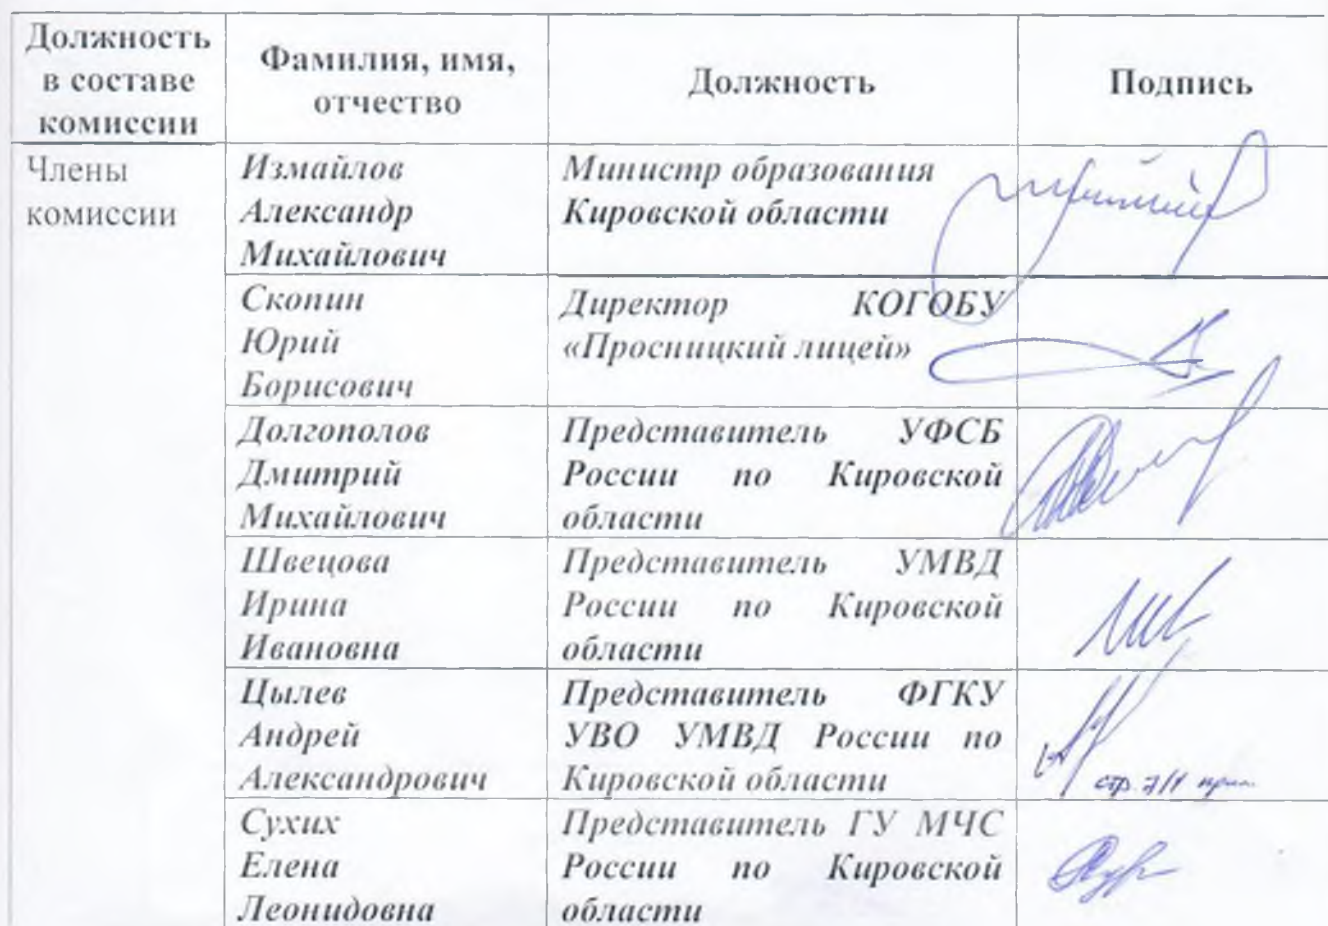 Должность
в составе
комиссии
Фамилия, имя,
отчество
Должность
Подпись
Члены
комиссии
Измайлов
Александр
Михайлович
Министр образования
Кировской области
Скопин
Юрий
Борисович
Директор КОГОБУ
«Просницкий лицей»
Долгополов
Дмитрий
Михайлович
Представитель УФСБ
России по Кировской
области
Швецова
Ирина
Ивановна
Представитель УМВД
России по Кировской
области
Цылев
Андрей
Александрович
Представитель ФГКУ
УВО УМВД России по
Кировской области
стр.
Сухих
Елена
Леонидовна
Представитель ГУ МЧС
России по Кировской
области